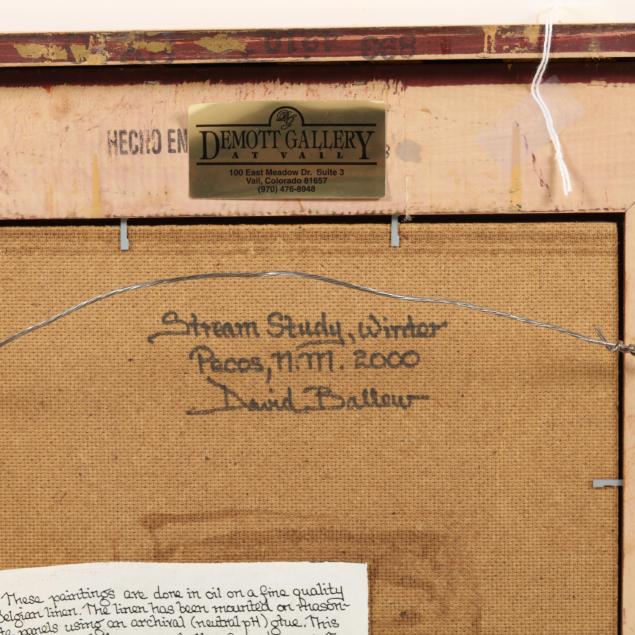 HECHO EN
DG
DEMOTT GALLERY
AT VAIL
100 East Meadow Dr. Suite 3
Vail, Colorado 81657
(970) 476-8948
Stream Study, Winter
Pecos, N.M. 2000
David Ballew
These paintings are done in oil on a fine quality
Belgian linen. The linen has been mounted on mason-
te panels using an archival (neutral pH) glue. This